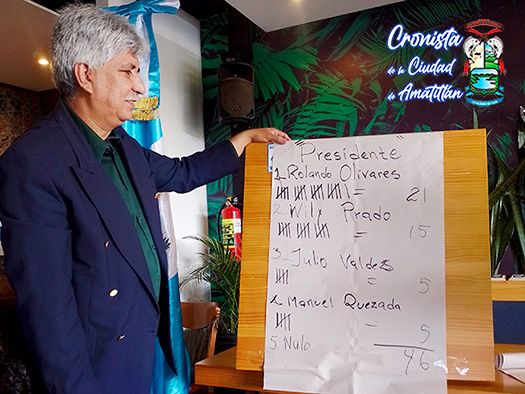 Cronista
de la
Ciudad
de
Amatitlán
"Presidente"
1 Rolando Olivares
= 21
2 Wily Prado
= 15
3- Julio Valdes
= 5
4 Manuel Quezada
- 5
5 Nulo
46